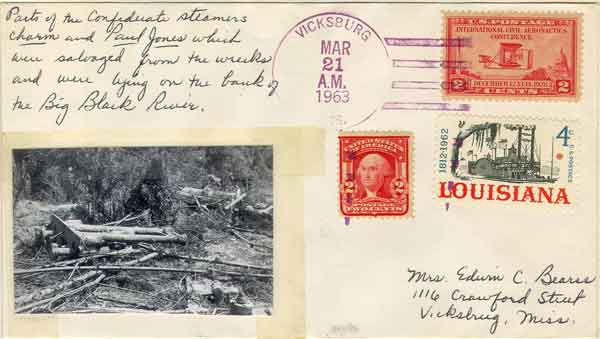 Parts of the Confederate steamers
Charm and Paul Jones which
were salvaged from the wrecks
and were lying on the bank of
the Big Black River.
VICKSBURG
MAR
21
A.M.
1963
U.S. POSTAGE
INTERNATIONAL CIVIL AERONAUTICS
CONFERENCE
DECEMBER 12,13,14, 1928
2 CENTS 2
UNITED STATES
OF AMERICA
2 2
POSTAGE
TWO CENTS
1812-1962
4¢
U.S. POSTAGE
LOUISIANA
Mrs. Edwin C. Bearss
1116 Crawford Street
Vicksburg, Miss.